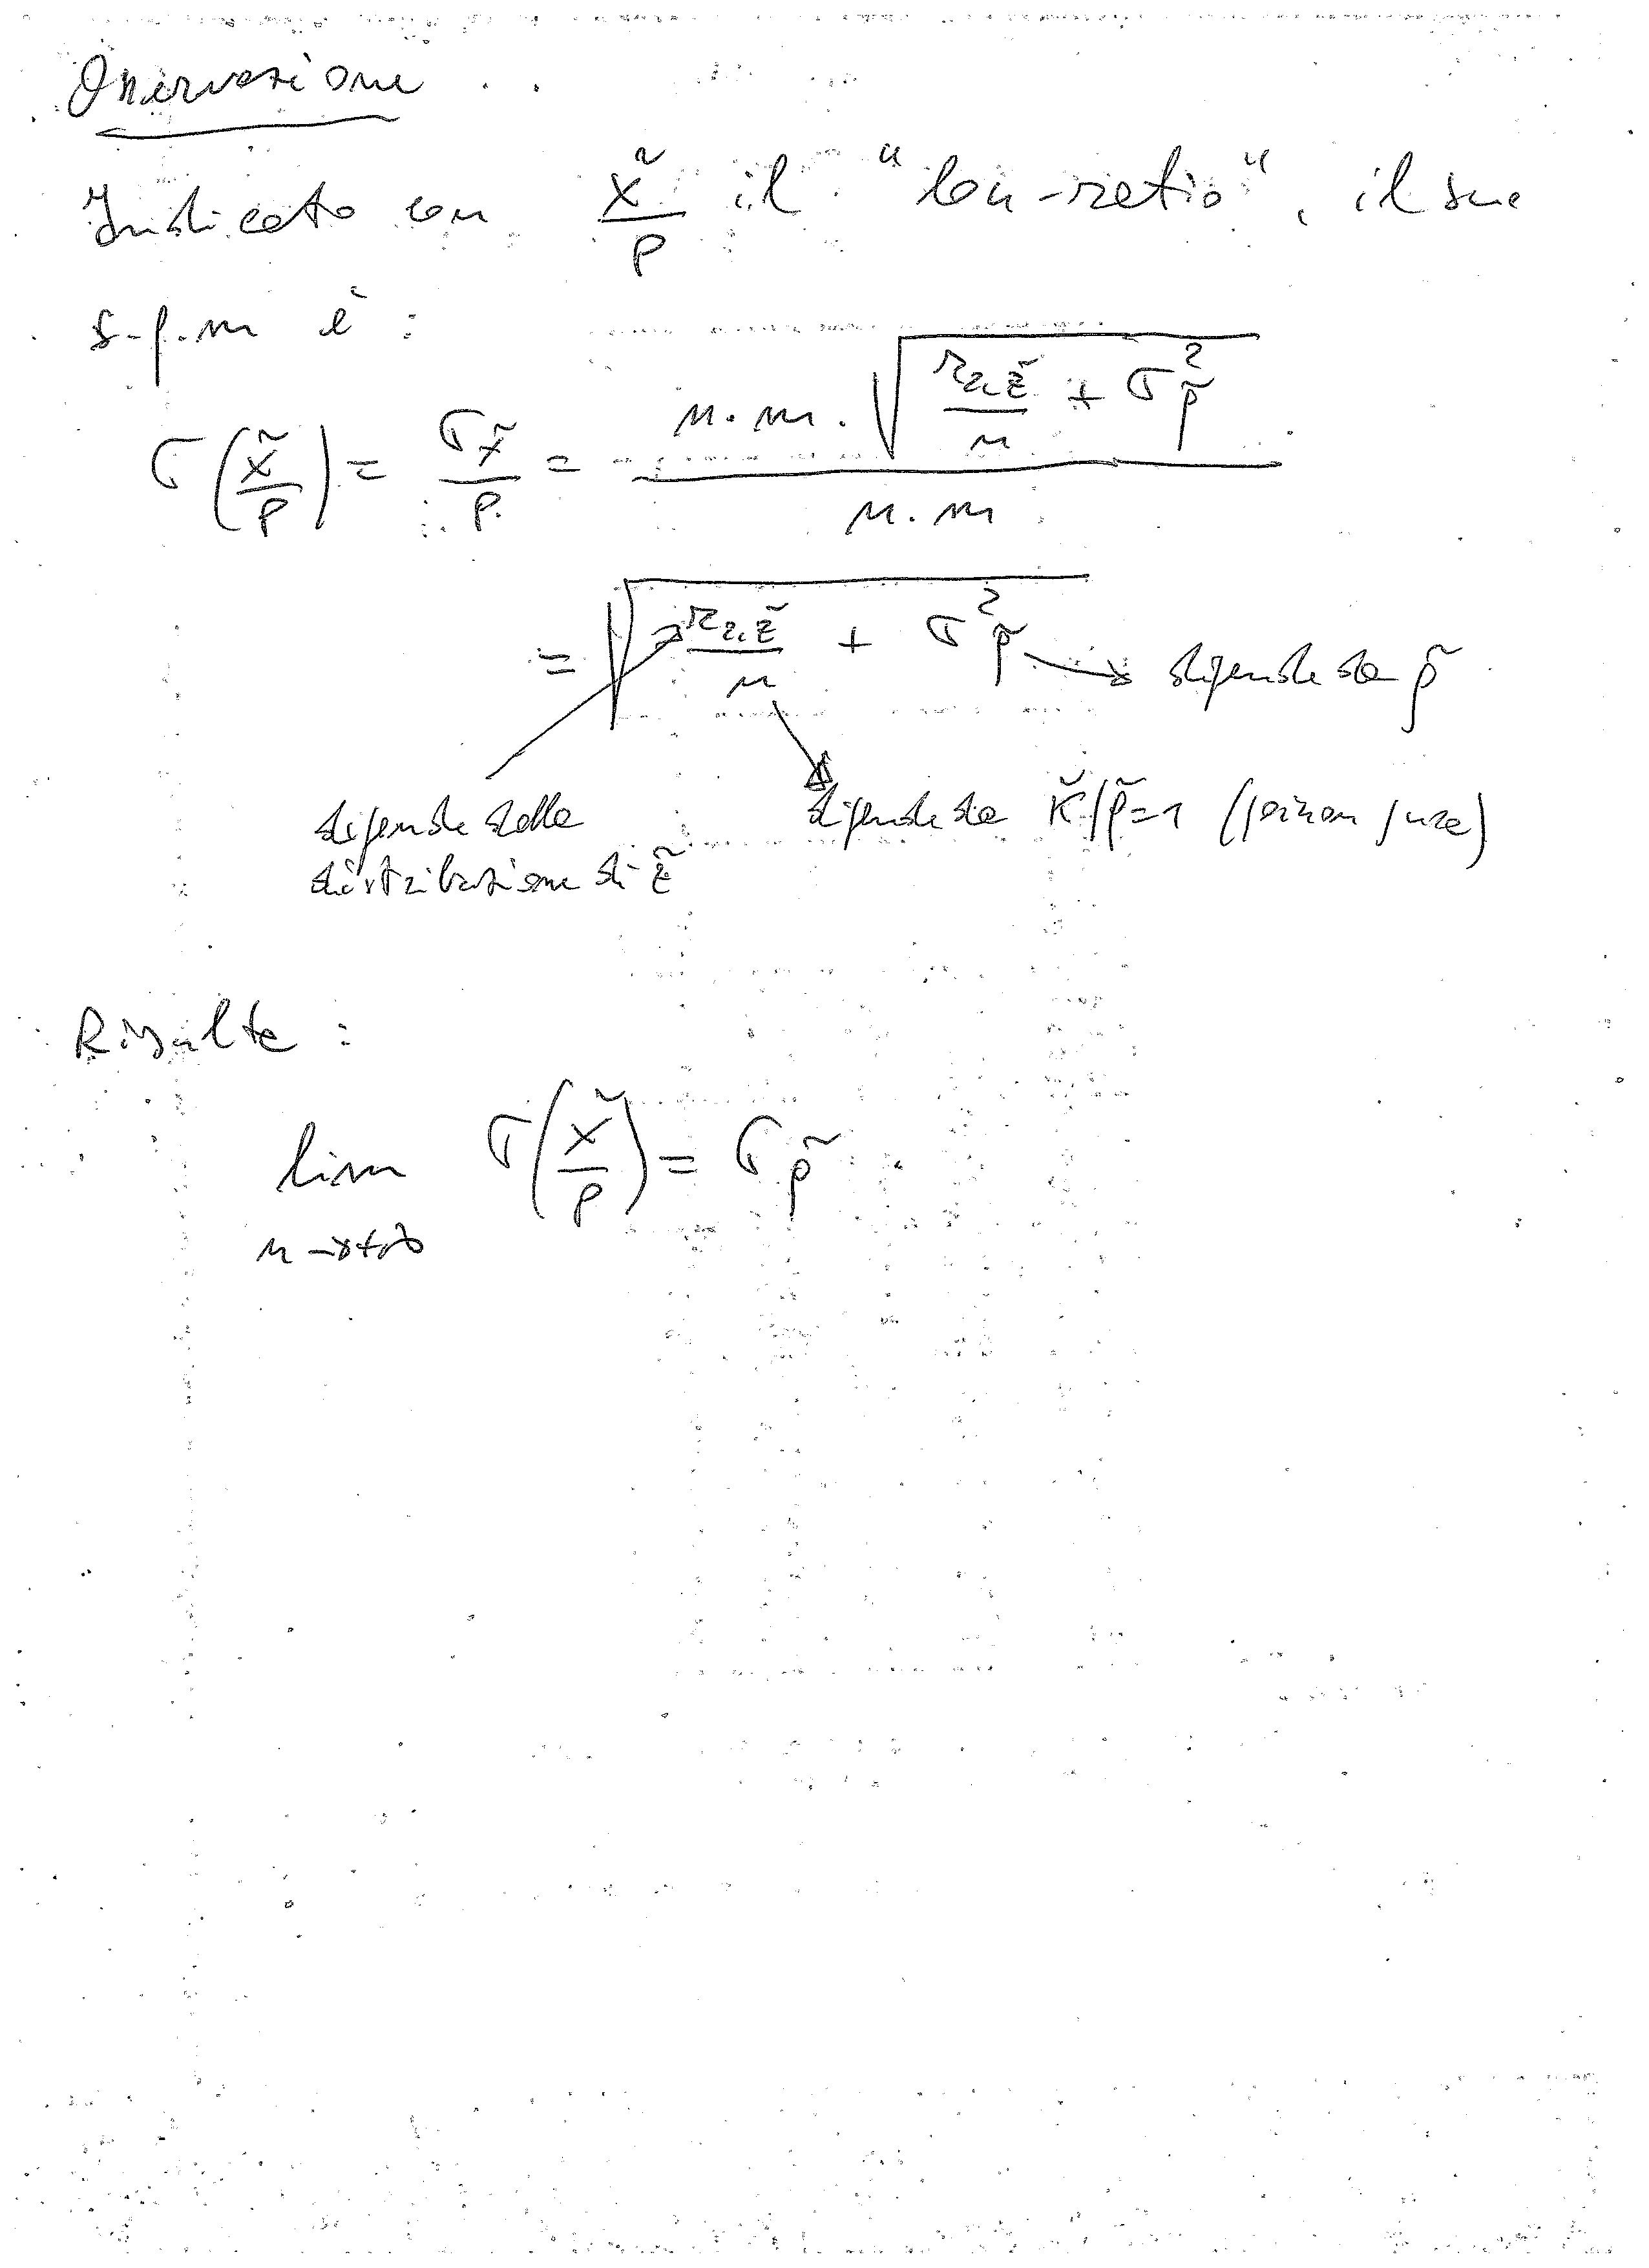 Osservazione
Indicato con x̃/P il "loss-ratio", il suo
s.q.m è :
σ(x̃/P) = σx̃/P = n.m.√(r₂,z̃/n + σ²p̃) / n.m
= √(r₂,z̃/n + σ²p̃) → dipende da p̃
dipende dalla
distribuzione di z̃
dipende da K̃/p̃=1 (poisson pura)
Risulta :
lim σ(x̃/P) = σp̃
n→+∞